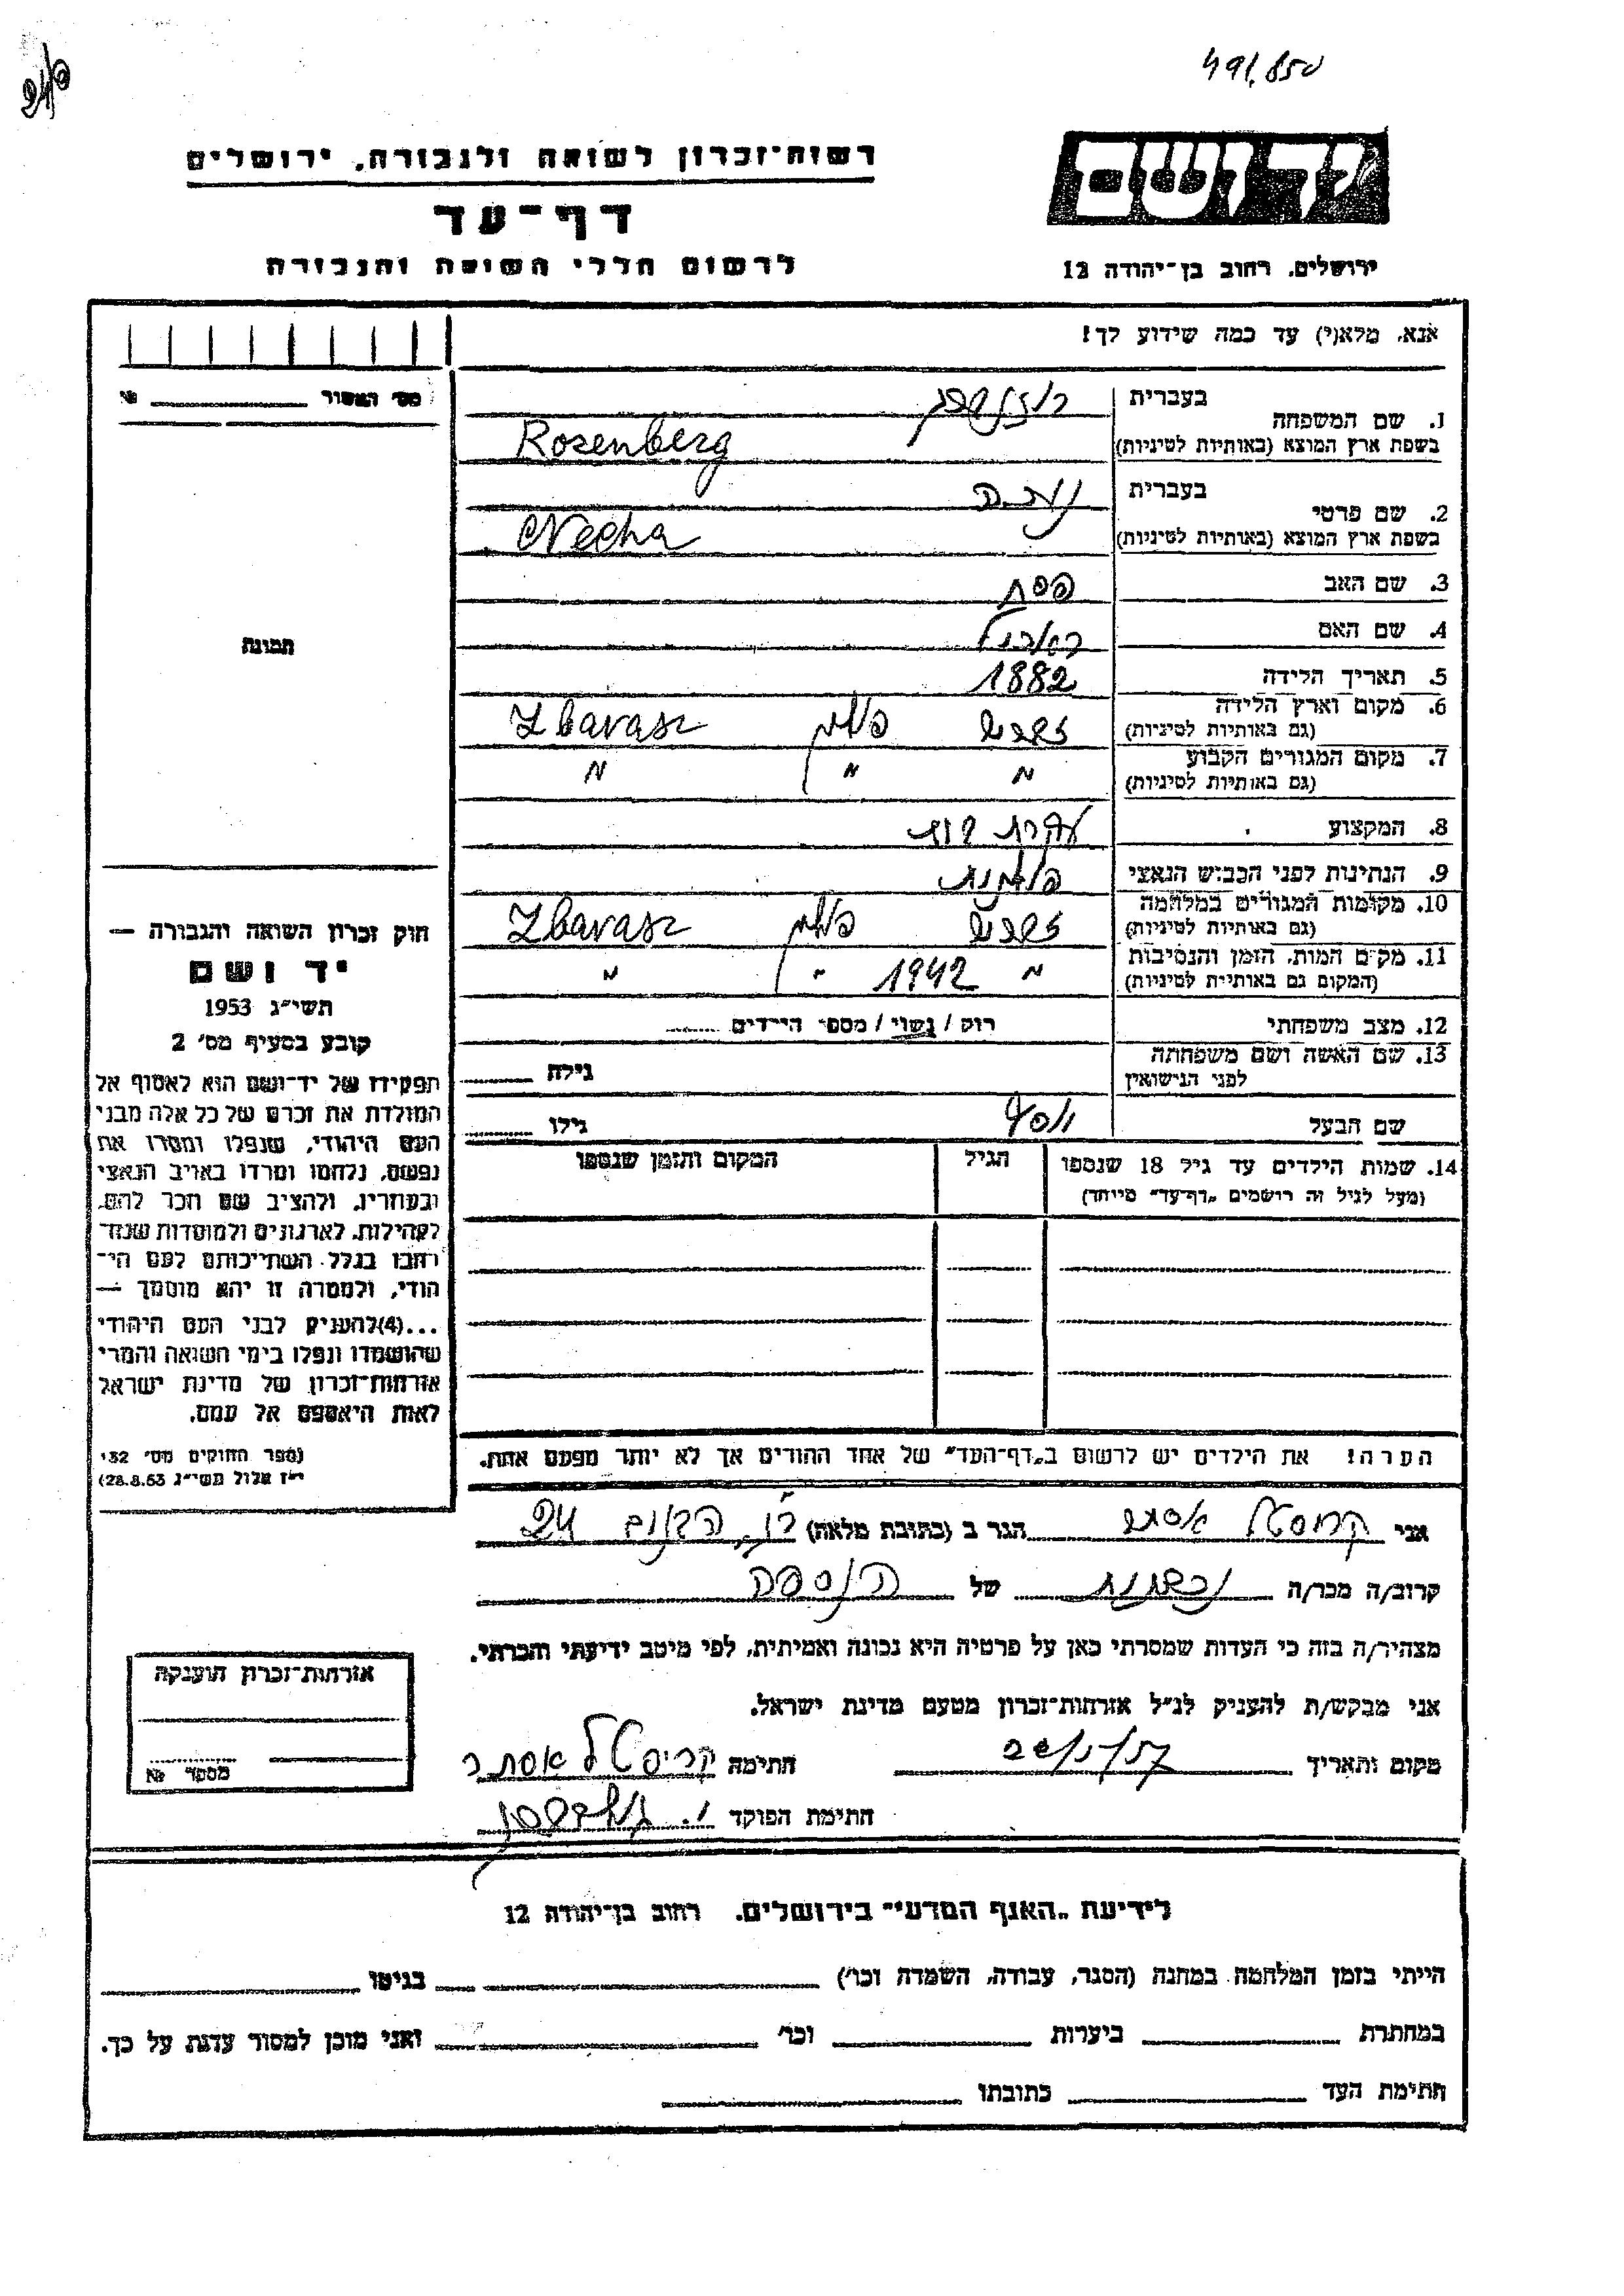 491.850
יד ושם
רשות־זכרון לשואה ולגבורה, ירושלים
דף־עד
ירושלים, רחוב בן־יהודה 12
לרשום חללי השואה והגבורה
אנא, מלא(י) עד כמה שידוע לך!
מס׳ האשור №
1. שם המשפחה
בעברית רוזנברג
בשפת ארץ המוצא (באותיות לטיניות) Rosenberg
2. שם פרטי
בעברית נחה
בשפת ארץ המוצא (באותיות לטיניות) Necha
3. שם האב פסח
4. שם האם
5. תאריך הלידה 1882
6. מקום וארץ הלידה זברש פולין Zbarasz
(גם באותיות לטיניות)
7. מקום המגורים הקבוע " " "
(גם באותיות לטיניות)
8. המקצוע עקרת בית
9. הנתינות לפני הכבוש הנאצי פולנית
10. מקומות המגורים במלחמה זברש פולין Zbarasz
(גם באותיות לטיניות)
11. מקום המות, הזמן והנסיבות " 1942 " "
(המקום גם באותיות לטיניות)
12. מצב משפחתי רוק / נשוי / מספר הילדים
13. שם האשה ושם משפחתה
לפני הנישואין
גילה
שם הבעל יוסף גילו
14. שמות הילדים עד גיל 18 שנספו הגיל המקום והזמן שנספו
(מעל לגיל זה רושמים „דף־עד” מיוחד)
הערה! את הילדים יש לרשום ב„דף־העד” של אחד ההורים אך לא יותר מפעם אחת.
תמונה
חוק זכרון השואה והגבורה —
יד ושם
תשי״ג 1953
קובע בסעיף מס׳ 2
תפקידו של יד־ושם הוא לאסוף אל
המולדת את זכרם של כל אלה מבני
העם היהודי, שנפלו ומסרו את
נפשם, נלחמו ומרדו באויב הנאצי
ובעוזריו, ולהציב שם וזכר להם,
לקהילות, לארגונים ולמוסדות שנח־
רחבו בגלל השתייכותם לעם הי־
הודי, ולמטרה זו יהא מוסמך —
...(4)להעניק לבני העם היהודי
שהושמדו ונפלו בימי השואה והמרי
אזרחות־זכרון של מדינת ישראל
לאות היאספם אל עמם.
(ספר החוקים מס׳ 132
י״ז אלול תשי״ג 28.8.53)
אני קריסטל אסתר הגר ב (כתובת מלאה) 24
קרוב/ה מכר/ה של הנספה
מצהיר/ה בזה כי העדות שמסרתי כאן על פרטיה היא נכונה ואמיתית, לפי מיטב ידיעתי והכרתי.
אני מבקש/ת להעניק לנ״ל אזרחות־זכרון מטעם מדינת ישראל.
מקום ותאריך חתימה קריסטל אסתר
חתימת הפוקד
אזרחות־זכרון הוענקה
מספר №
לידיעת „האגף המדעי” בירושלים, רחוב בן־יהודה 12
הייתי בזמן המלחמה במחנה (הסגר, עבודה, השמדה וכו׳) בגיטו
במחתרת ביערות וכו׳ ואני מוכן למסור עדות על כך.
חתימת העד כתובתו